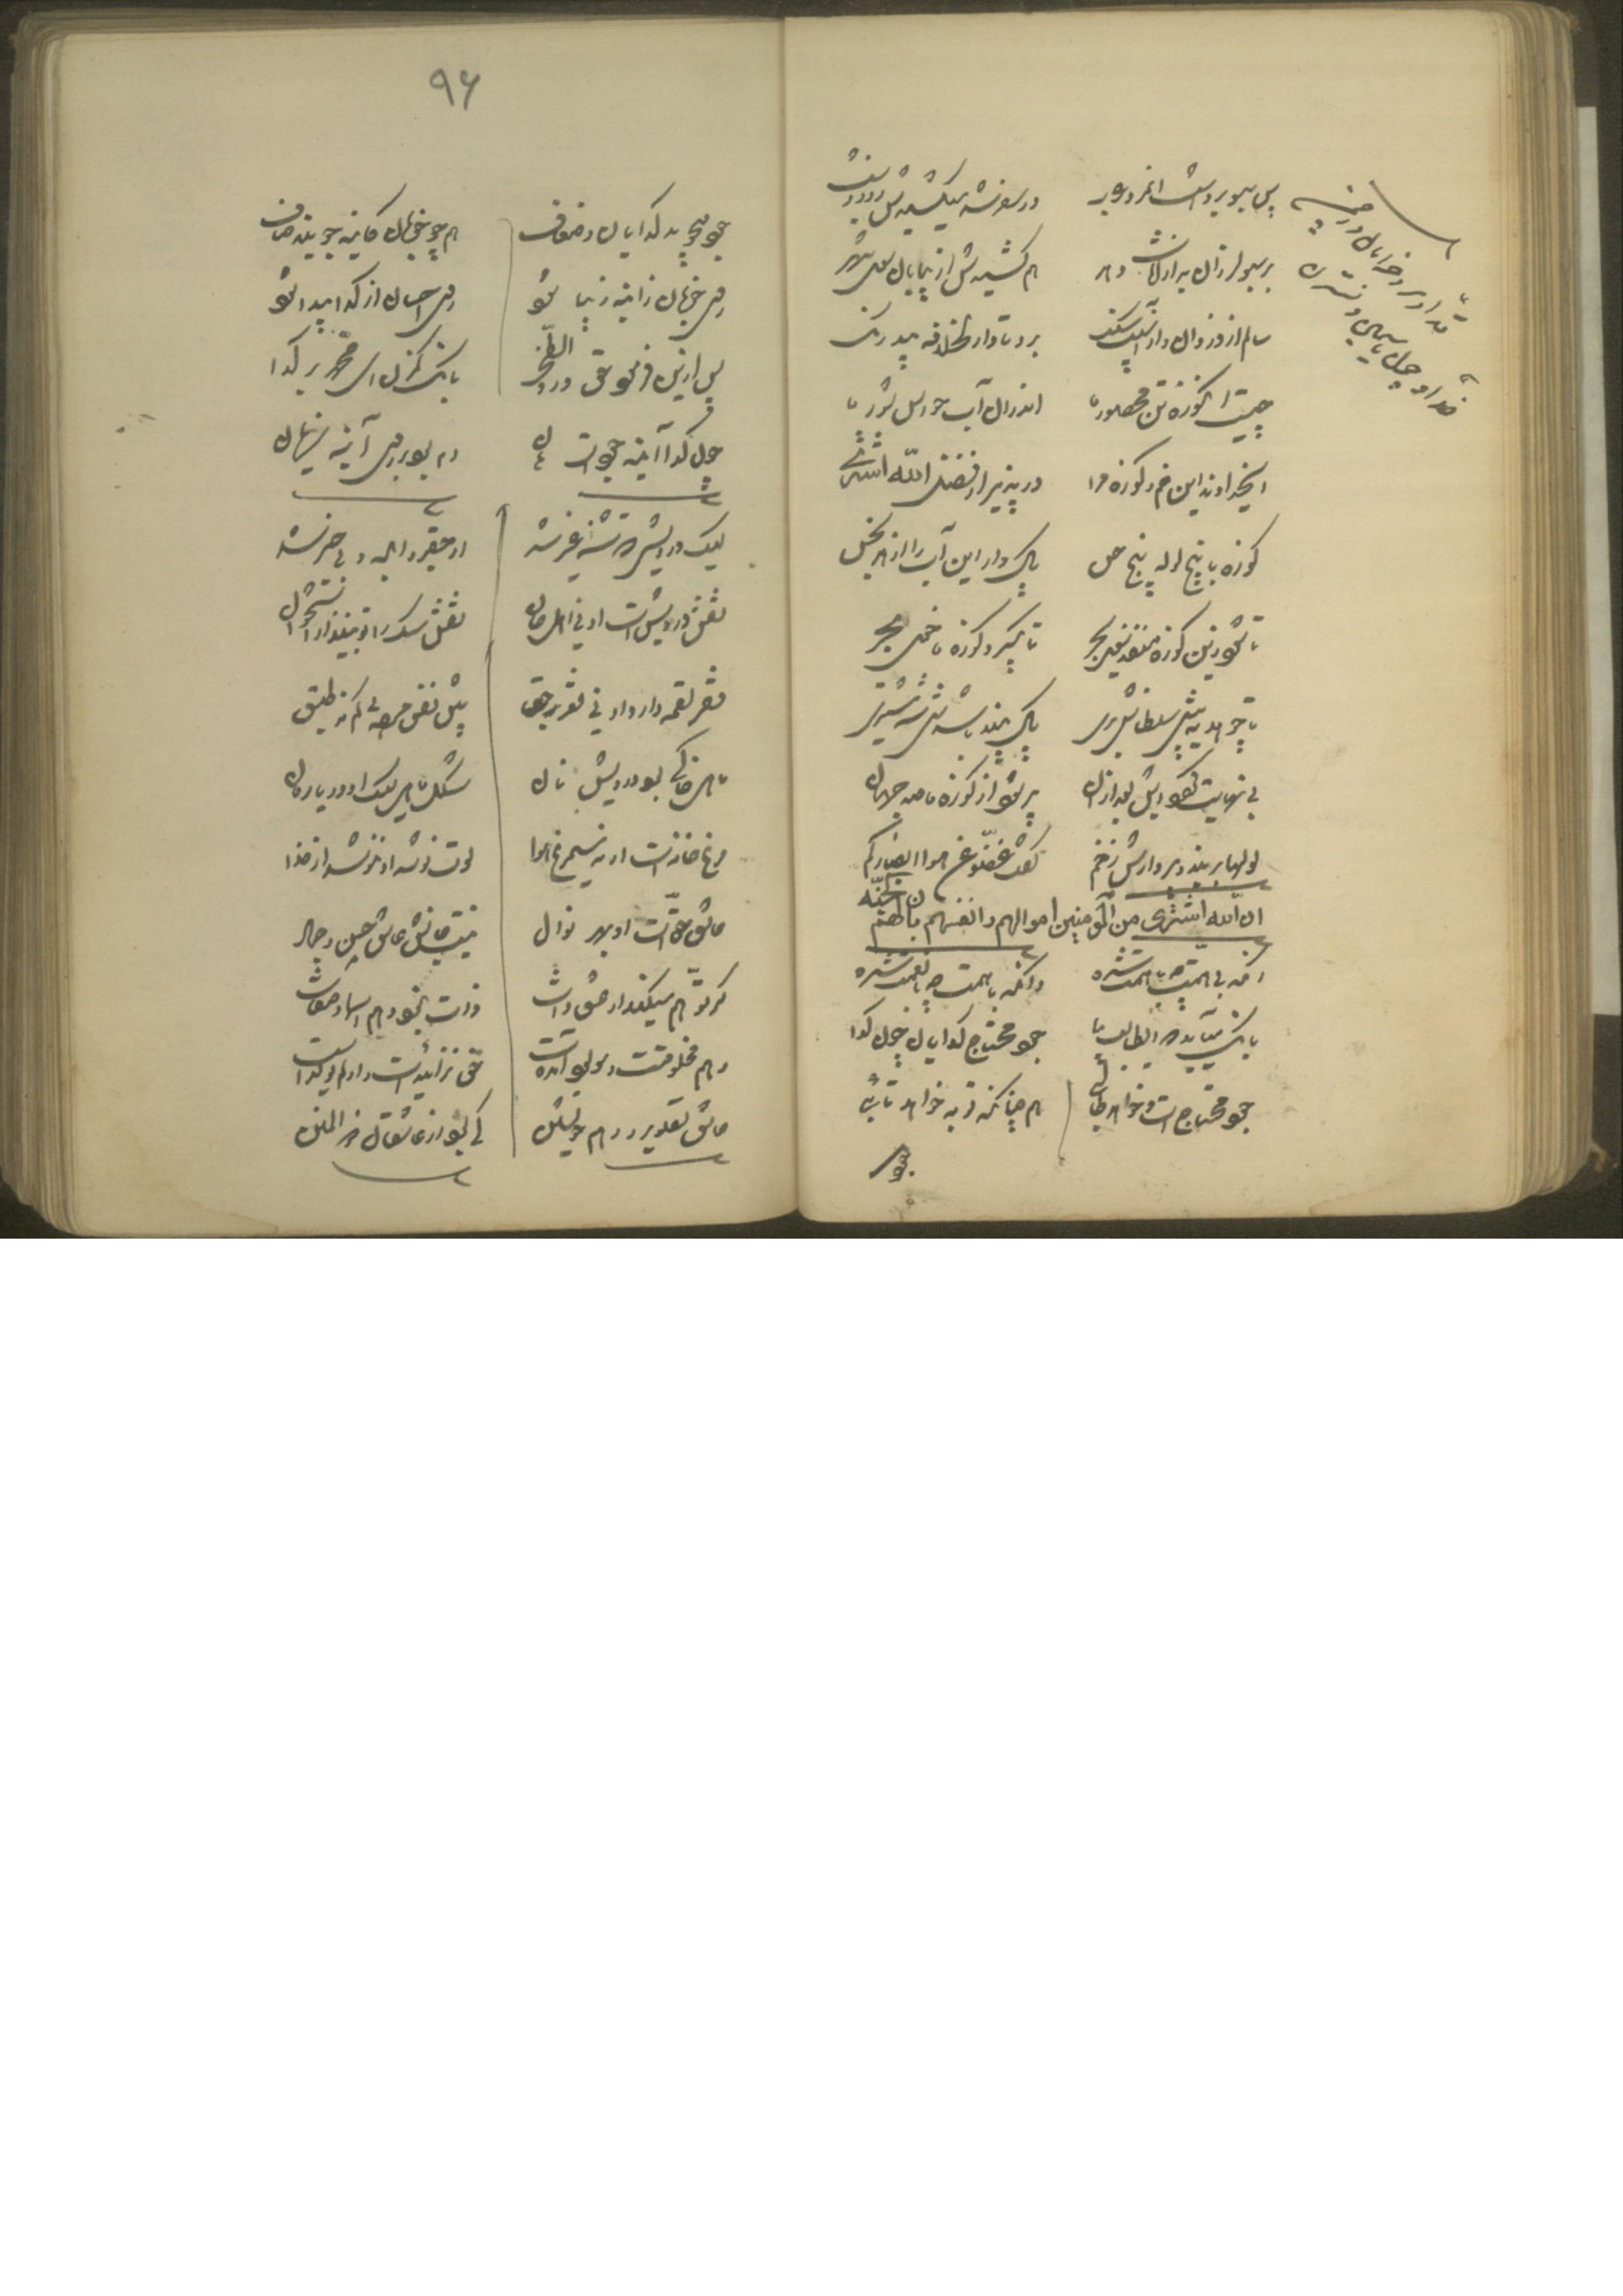 پس سبو برداشت آنمرد عرب
در سفر شد میکشیدش روز و شب
بر سبو لرزان بد از آفات دهر
هم کشیدش از بیابان سوی شهر
سالم از دزدان و از آسیب سنگ
برد تا دار الخلافه بیدرنگ
چیست آن کوزه تن محصور ما
اندر آن آب حواس شور ما
ایخداوند این خم و کوزه مرا
در پذیر از فضل الله اشتری
کوزه با پنج لوله پنج حس
پاک دار این آب را از هر نجس
تا شود زین کوزه منفذ سوی بحر
تا بگیرد کوزه ما خوی بحر
تا چو هدیه پیش سلطانش بری
پاک بیند باشدش شه مشتری
بی نهایت گردد آبش بعد از آن
پر شود از کوزه ما صد جهان
لولها بر بند و پر دارش ز خم
گفت غضوا عن هوا ابصارکم
ان الله اشتری من المؤمنین اموالهم و انفسهم بان لهم الجنه
آنکه بی همت چه با همت شده
وانکه با همت چه با نعمت شده
بانگ میآید که ای طالب بیا
جود محتاج گدایان چون گدا
جود محتاج است و خواهد طالبی
هم چنانکه توبه خواهد تائبی
جود
۹۶
جود میجوید گدایان و ضعاف
هم چو خوبان کاینه جویند صاف
روی خوبان ز آینه زیبا شود
روی احسان از گدا پیدا شود
پس از این فرمود حق در والضحی
بانگ کم زن ای محمد بر گدا
چون گدا آئینه جود است هان
دم بود بر روی آینه زیان
لیک درویشی که تشنه غیر شد
او حقیر و ابله و بی خیر شد
نقش درویش است او نی اهل جان
نقش سگ را تو مینداز استخوان
فقر لقمه دارد او نی فقر حق
پیش نقش مرده کم نه طبق
ماهی خاکی بود درویش نان
شکل ماهی لیک از دریا رمان
مرغ خانه است او نه سیمرغ هوا
لوت نوشد او ننوشد از خدا
عاشق حق است او بهر نوال
نیست جانش عاشق حسن و جمال
گر توهم میکند او عشق ذات
ذات نبود وهم اسما و صفات
وهم مخلوقست و مولود آمده است
حق نزائیده است او لم یولد است
عاشق تصویر و وهم خویشتن
کی بود از عاشقان ذو المنن